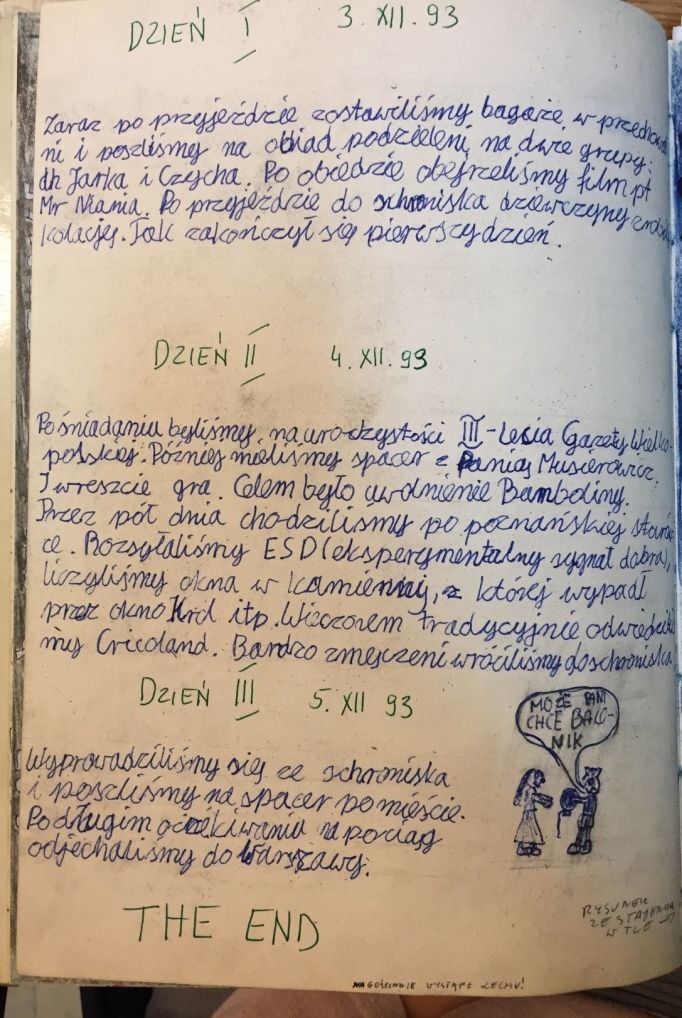 DZIEŃ I 3. XII. 93
Zaraz po przyjeździe zostawiliśmy bagaże w przechowal
ni i poszliśmy na obiad podzieleni na dwie grupy:
dh Jarka i Czycha. Po obiedzie obejrzeliśmy film pt
Mr Niania. Po przyjeździe do schroniska dziewczyny zrobiły
kolację. Tak zakończył się pierwszy dzień.
DZIEŃ II 4. XII. 93
Po śniadaniu byliśmy na uroczystości III-lecia Gazety Wielko-
polskiej. Później mieliśmy spacer z Panią Musierowicz.
I wreszcie gra. Celem było uwolnienie Bamboliny.
Przez pół dnia chodziliśmy po poznańskiej starów
ce. Rozsyłaliśmy ESD (eksperymentalny sygnał dobra),
liczyliśmy okna w kamienicy, z której wypadł
przez okno Król itp. Wieczorem tradycyjnie odwiedzili
my Cricoland. Bardzo zmęczeni wróciliśmy do schroniska
DZIEŃ III 5. XII 93
MOŻE PANI
CHCE BALO-
NIK
Wyprowadziliśmy się ze schroniska
i poszliśmy na spacer po mieście.
Po długim oczekiwaniu na pociąg
odjechaliśmy do Warszawy.
THE END
RYSUNEK
ZE STAJENKĄ
W TLE →
NA GOŚCINNIE WYSTĄPŁ LECHU!